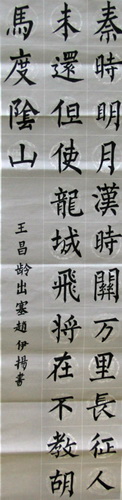 秦時明月漢時關万里長征人
未還但使龍城飛将在不教胡
馬度陰山
王昌龄出塞趙伊揚書